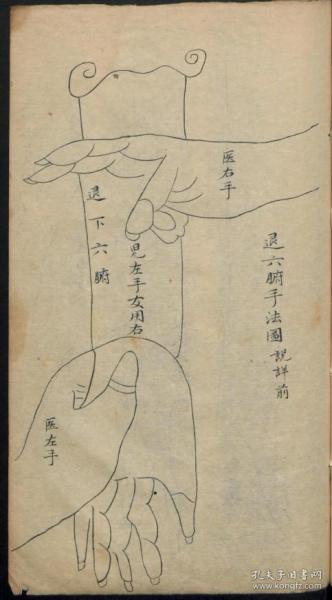 退六腑手法圖說詳前
医右手
兒左手女用右
退下六腑
医左手
孔夫子旧书网
www.kongfz.com